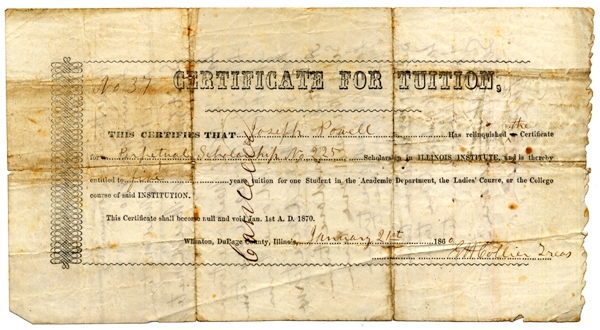 No 37
CERTIFICATE FOR TUITION,
THIS CERTIFIES THAT Joseph Powell Has relinquished the Certificate
for Perpetual Scholarship No 225 Scholarship in ILLINOIS INSTITUTE, and is thereby
entitled to years tuition for one Student in the Academic Department, the Ladies' Course, or the College
course of said INSTITUTION.
This Certificate shall become null and void Jan. 1st A. D. 1870.
Wheaton, DuPage County, Illinois, January 21st 1860
Collier Treas
Cancelled